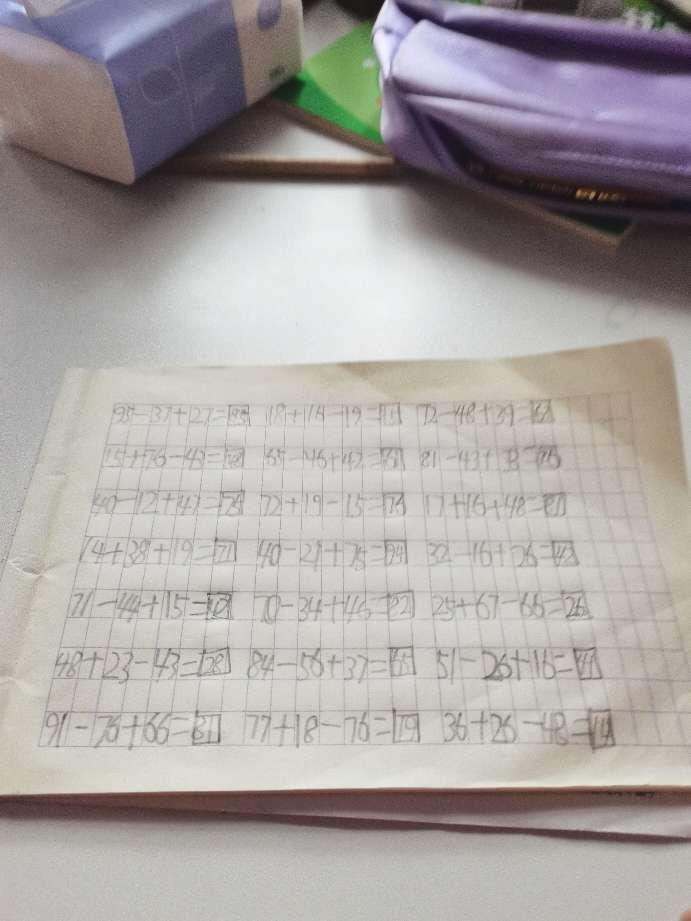 95-37+27=85 18+14-19= 72-48+39=63
15+76-43=48 65-46+42=61 81-43+38=76
40-12+47=75 72+19-15=76 17+16+48=81
14+38+19=71 40-21+75=94 32-16+26=42
71-44+15=42 70-34+46=82 25+67-66=26
48+23-43=28 84-56+37=65 51-26+16=41
91-76+66=81 77+18-76=19 36+26-48=14